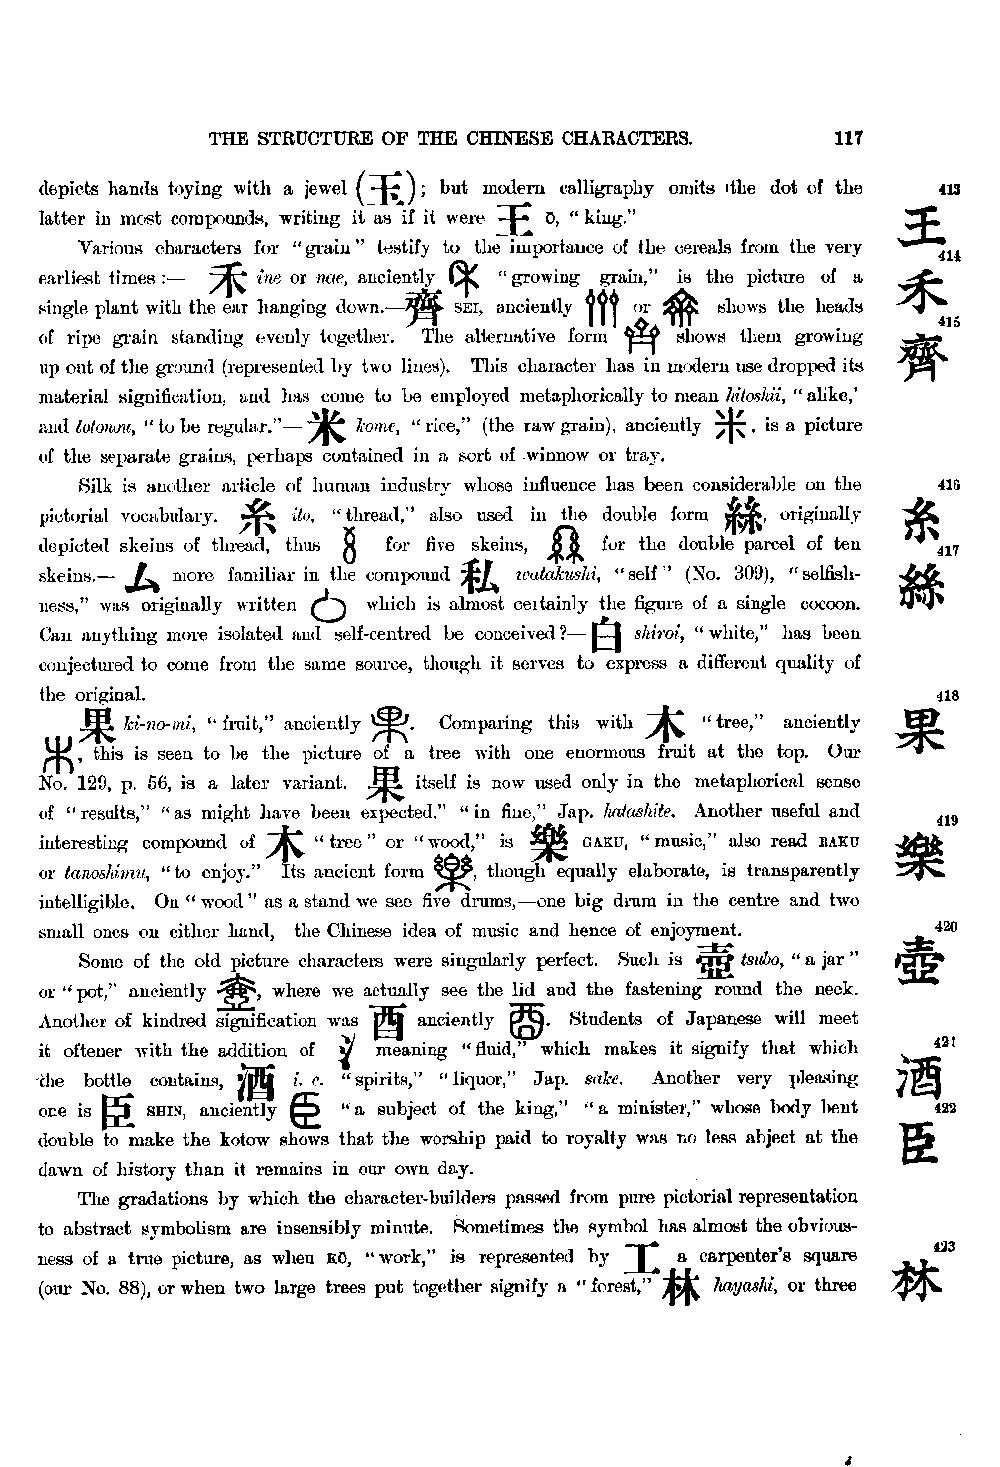 THE STRUCTURE OF THE CHINESE CHARACTERS. 117
depicts hands toying with a jewel (玉); but modern calligraphy omits the dot of the 413
latter in most compounds, writing it as if it were 王 ō, “king.” 王
Various characters for “grain” testify to the importance of the cereals from the very 414
earliest times:— 禾 ine or nae, anciently “growing grain,” is the picture of a 禾
single plant with the ear hanging down.—齊 SEI, anciently or shows the heads 415
of ripe grain standing evenly together. The alternative form shows them growing 齊
up out of the ground (represented by two lines). This character has in modern use dropped its
material signification, and has come to be employed metaphorically to mean hitoshii, “alike,’
and totonou, “to be regular.”—米 kome, “rice,” (the raw grain), anciently , is a picture
of the separate grains, perhaps contained in a sort of winnow or tray.
Silk is another article of human industry whose influence has been considerable on the 416
pictorial vocabulary. 糸 ito, “thread,” also used in the double form 絲, originally 糸
depicted skeins of thread, thus for five skeins, for the double parcel of ten 417
skeins.—厶 more familiar in the compound 私 watakushi, “self” (No. 309), “selfish- 絲
ness,” was originally written which is almost certainly the figure of a single cocoon.
Can anything more isolated and self-centred be conceived?—白 shiroi, “white,” has been
conjectured to come from the same source, though it serves to express a different quality of
the original. 418
果 ki-no-mi, “fruit,” anciently . Comparing this with 木 “tree,” anciently 果
, this is seen to be the picture of a tree with one enormous fruit at the top. Our
No. 129, p. 56, is a later variant. 果 itself is now used only in the metaphorical sense
of “results,” “as might have been expected,” “in fine,” Jap. hatashite. Another useful and 419
interesting compound of 木 “tree” or “wood,” is 樂 GAKU, “music,” also read RAKU 樂
or tanoshimu, “to enjoy.” Its ancient form , though equally elaborate, is transparently
intelligible. On “wood” as a stand we see five drums,—one big drum in the centre and two
small ones on either hand, the Chinese idea of music and hence of enjoyment. 420
Some of the old picture characters were singularly perfect. Such is 壺 tsubo, “a jar” 壺
or “pot,” anciently , where we actually see the lid and the fastening round the neck.
Another of kindred signification was 酉 anciently . Students of Japanese will meet
it oftener with the addition of 氵 meaning “fluid,” which makes it signify that which 421
the bottle contains, 酒 i. e. “spirits,” “liquor,” Jap. sake. Another very pleasing 酒
one is 臣 SHIN, anciently “a subject of the king,” “a minister,” whose body bent 422
double to make the kotow shows that the worship paid to royalty was no less abject at the 臣
dawn of history than it remains in our own day.
The gradations by which the character-builders passed from pure pictorial representation
to abstract symbolism are insensibly minute. Sometimes the symbol has almost the obvious-
ness of a true picture, as when KŌ, “work,” is represented by 工 a carpenter’s square 423
(our No. 88), or when two large trees put together signify a “forest,” 林 hayashi, or three 林